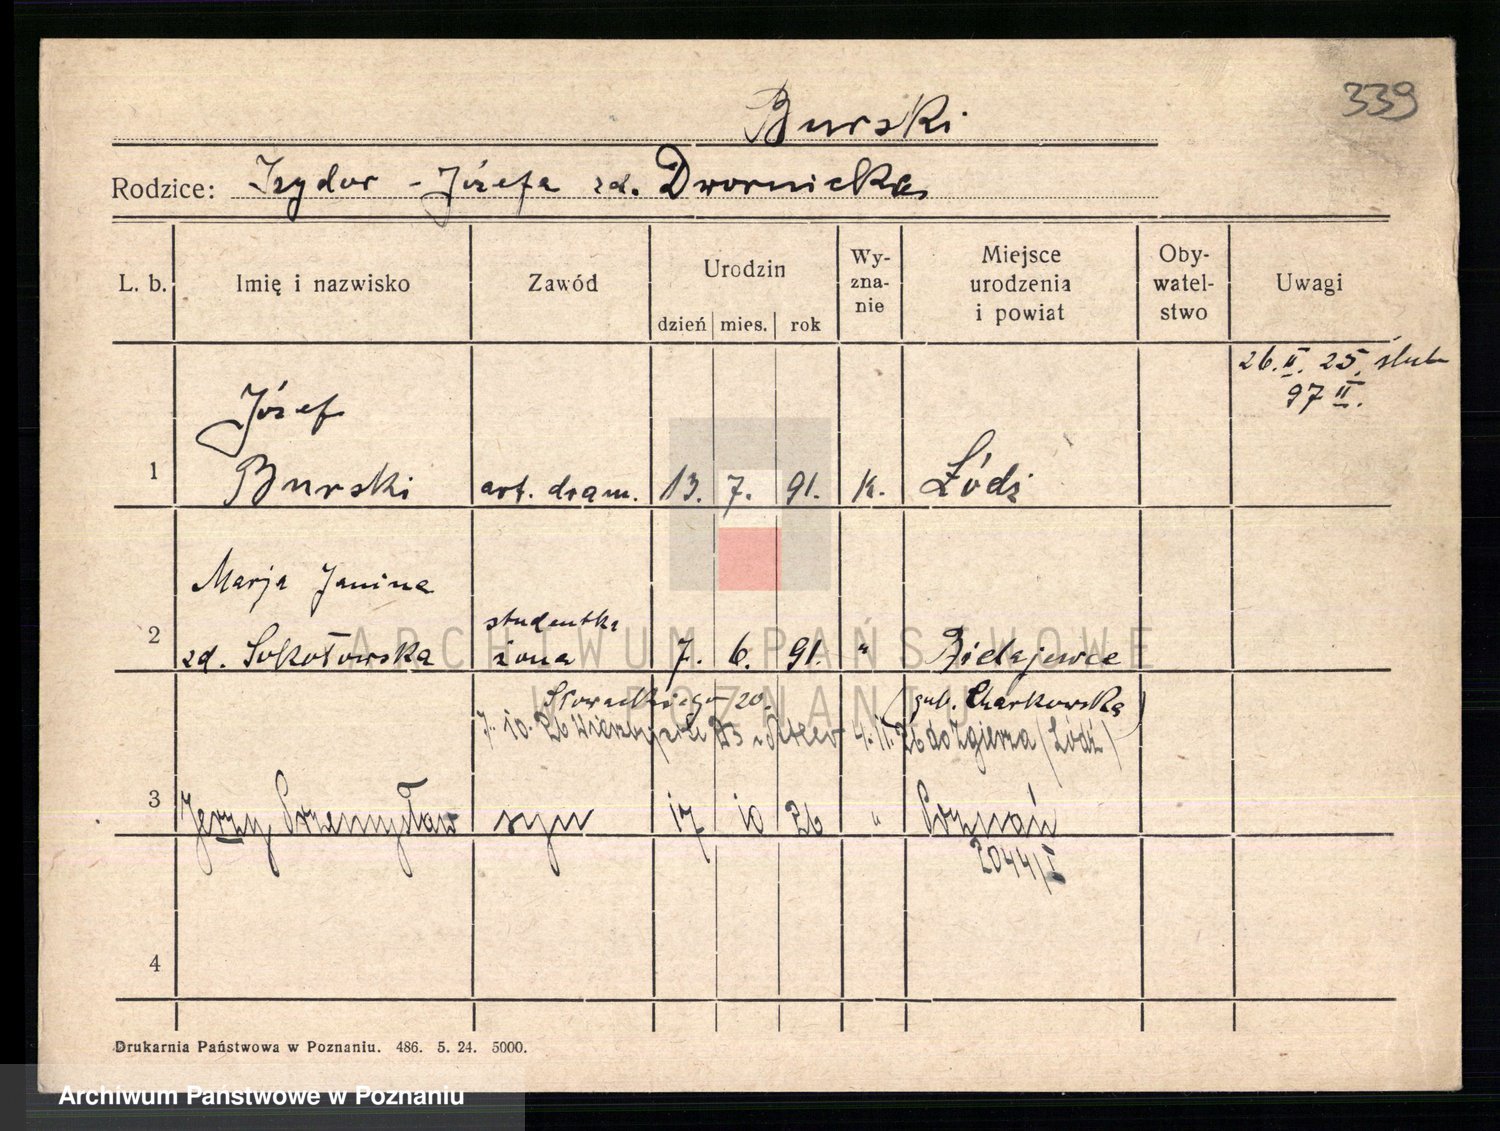 339
Burski
Rodzice: Izydor - Józefa zd. Dwornicka
L. b. Imię i nazwisko Zawód Urodzin dzień mies. rok Wy-zna-nie Miejsce urodzenia i powiat Oby-watel-stwo Uwagi
26. II. 25. ślub
97 II.
Józef
1 Burski art. dram. 13. 7. 91. k. Łódź
Marja Janina
studentka
2 zd. Sokołowska żona 7. 6. 91. " Bielajewce
Słowackiego 20. (gub. Charkowska)
7. 10. 26 23 4. 11. 26 do Zgierza (Łódź)
3 Jerzy Przemysław syn 17 10 26 " Poznań
2044/I
4
Drukarnia Państwowa w Poznaniu. 486. 5. 24. 5000.
ARCHIWUM PAŃSTWOWE
W POZNANIU
Archiwum Państwowe w Poznaniu